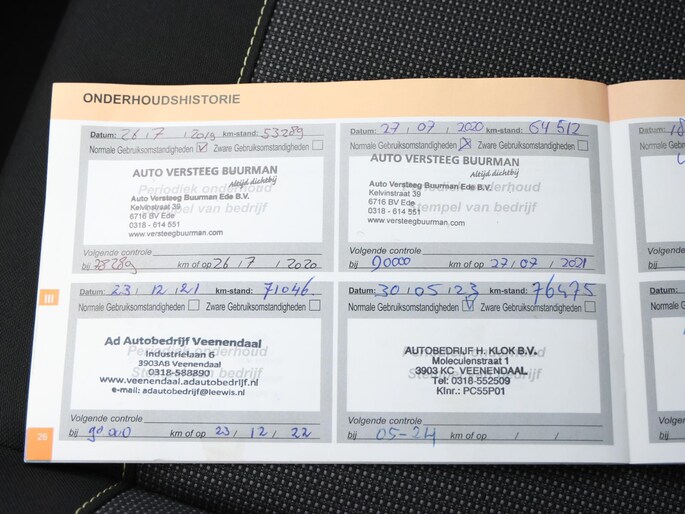 ONDERHOUDSHISTORIE
Datum: 26 / 7 / 2019 km-stand: 53289
Normale Gebruiksomstandigheden Zware Gebruiksomstandigheden
Periodiek onderhoud
Stempel van bedrijf
AUTO VERSTEEG BUURMAN
Altijd dichtbij
Auto Versteeg Buurman Ede B.V.
Kelvinstraat 39
6716 BV Ede
0318 - 614 551
www.versteegbuurman.com
Volgende controle
bij 78289 km of op 26 / 7 / 2020
Datum: 27 / 07 / 2020 km-stand: 64512
Normale Gebruiksomstandigheden Zware Gebruiksomstandigheden
Periodiek onderhoud
Stempel van bedrijf
AUTO VERSTEEG BUURMAN
Altijd dichtbij
Auto Versteeg Buurman Ede B.V.
Kelvinstraat 39
6716 BV Ede
0318 - 614 551
www.versteegbuurman.com
Volgende controle
bij 90000 km of op 27 / 07 / 2021
III
Datum: 23 / 12 / 21 km-stand: 71046
Normale Gebruiksomstandigheden Zware Gebruiksomstandigheden
Periodiek onderhoud
Ad Autobedrijf Veenendaal
Industrielaan 6
3903AB Veenendaal
0318-588890
www.veenendaal.adautobedrijf.nl
e-mail: adautobedrijf@leewis.nl
Volgende controle
bij 90.000 km of op 23 / 12 / 22
Datum: 30 / 05 / 23 km-stand: 76475
Normale Gebruiksomstandigheden Zware Gebruiksomstandigheden
AUTOBEDRIJF H. KLOK B.V.
Moleculenstraat 1
3903 KC VEENENDAAL
Tel: 0318-552509
Klnr.: PC55P01
Volgende controle
bij 05-24 km of op / /
26